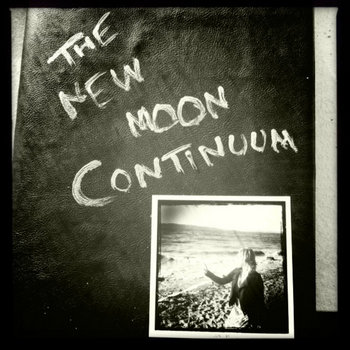 THE
NEW
MOON
CONTINUUM